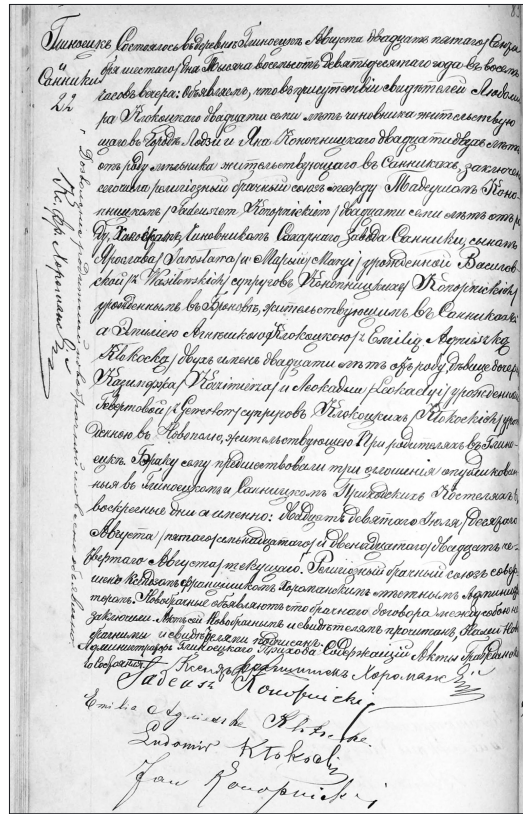 85
Глиноецкъ Состоялось въ деревнѣ Глиноецкъ Августа двадцать пятаго/Сентя-
Санники
22
бря шестаго/дня Тысяча восемьсотъ девятидесятаго года въ восемь
часовъ вечера: Объявляемъ, что въ присутствіи свидѣтелей Людоми-
ра Клокоцкаго двадцати семи лѣтъ чиновника жительствую-
щаго въ Городѣ Лодзи и Яна Конопницкаго двадцати двухъ лѣтъ
отъ роду мѣльника жительствующаго въ Санникахъ, заключенъ
сегодня религіозный брачный союзъ между Тадеушомъ Коно-
пницкимъ /Tadeuszem Konopnickim/ двадцати семи лѣтъ отъ ро-
ду, Холостымъ, Чиновникомъ Сахарнаго Завода Санники, сыномъ
Ярослава /Jarosława/ и Марыи /Maryi/ урожденной Василов-
ской /z Wasiłowskich/ супруговъ Конопницкихъ /Konopnickich/
урожденнымъ въ Броновѣ, жительствующимъ въ Санникахъ
а Эмиліею Агнешкою Клокоцкою /z Emilią Agnieszką
Kłokocką/ двухъ именъ двадцати лѣтъ отъ роду, дѣвицею дочерью
Казимѣра /Kazimierza/ и Леокадіи /Leokadyi/ урожденной
Гевертовой /z Gewertow/ супруговъ Клокоцкихъ /Kłokockich/ уро-
жденною въ Новополю, жительствующею При родителяхъ въ Глино-
ецкѣ. Браку сему предшествовали три оглашенія опубликован-
ныя въ Глиноецкомъ и Санницкомъ Приходскихъ Костелахъ въ
воскресные дни а именно: двадцать девятаго Іюля/десятаго
Августа/, пятаго/семнадцатаго/ и двенадцатаго/двадцать че-
твертаго Августа/текущаго. Религіозный брачный союзъ совер-
шенъ Ксендзомъ Францишкомъ Хороманскимъ мѣстнымъ Админист-
раторомъ. Новобрачные объявляютъ что брачнаго договора между собою не
заключили. Актъ сей Новобрачнымъ и свидѣтелямъ прочитанъ, Нами Ново-
брачными и свидѣтелями подписанъ.
Администраторъ Глиноецкаго Прихода Содержащій Акты Гражданскаго
Состоянія Ксендзъ Францишекъ Хороманскій
Tadeusz Konopnicki
Emilia Agnieszka Kłokocka.
Ludomir Kłokocki
Jan Konopnicki
Кс. Фр. Хороманскій